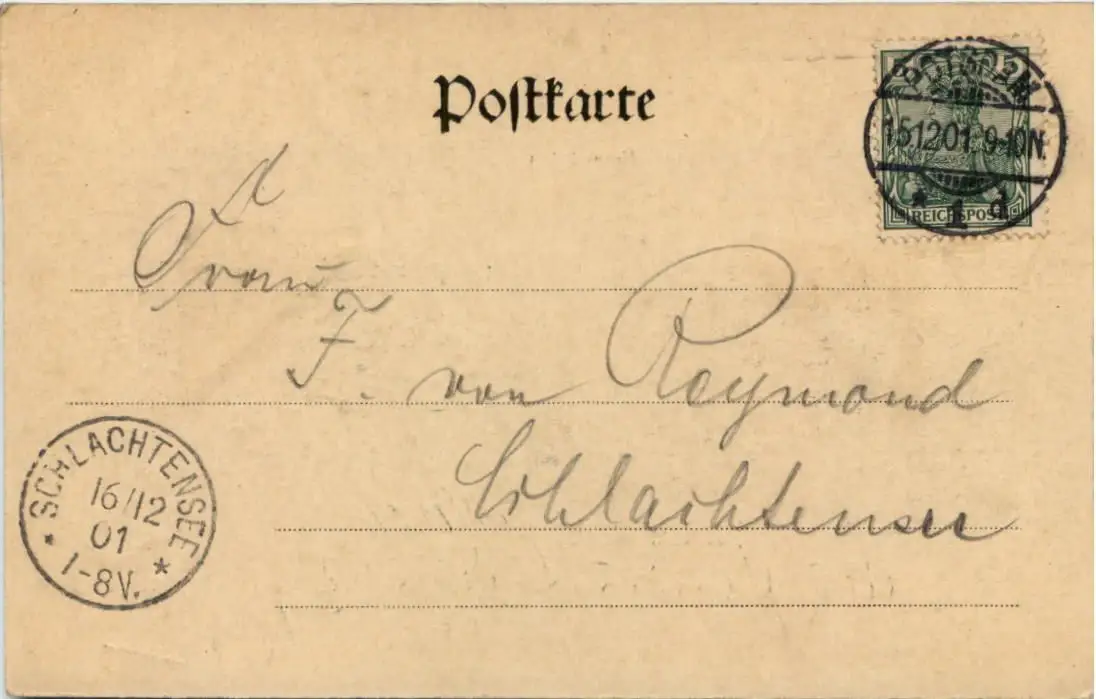 Postkarte
POTSDAM
15.12.01. 9-10N.
* 1 d
REICHSPOST
Frau
F. von Reymond
Schlachtensee
SCHLACHTENSEE
16/12
01
1-8V.